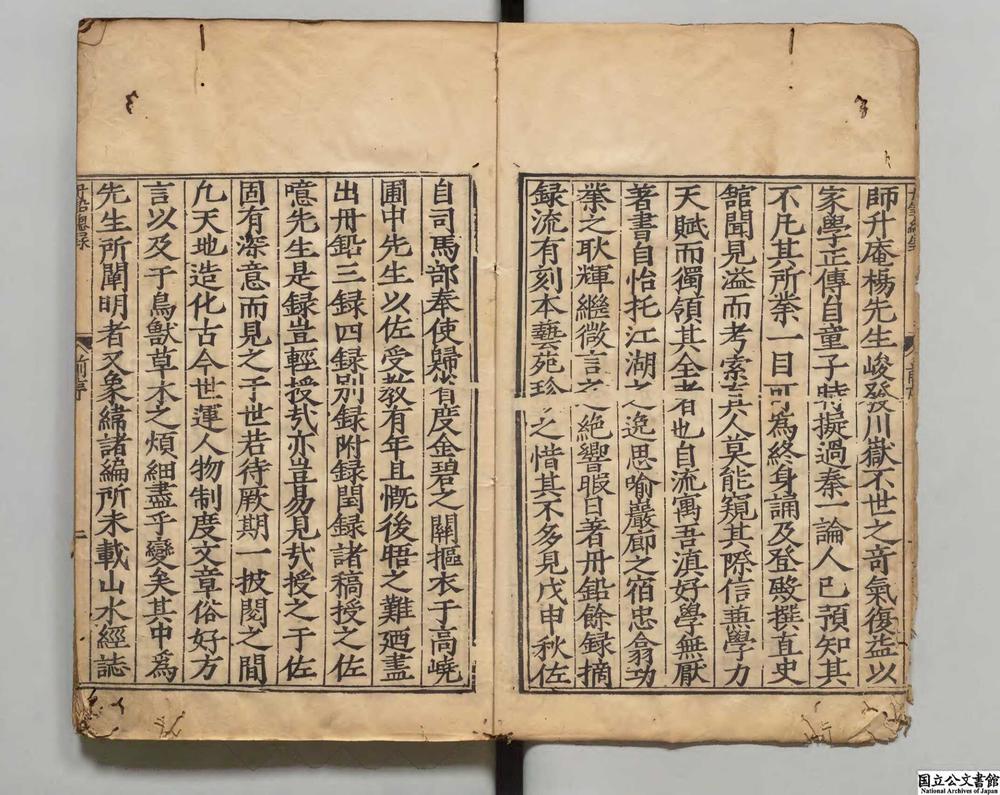 師升庵楊先生峻發川嶽不世之奇氣復益以
家學正傳自童子時擬過秦一論人已預知其
不凡其所举一目可為終身誦及登毆撰直史
舘聞見溢而考索人莫能窺其際信兼學力
天賦而獨領其全者也自流寓吾滇好學無厭
著書自怡托江湖之逸思喻巖廊之宿忠翕功
举之耿輝繼微言之絕響暇日著丹鉛餘録摘
録流有刻本藝苑珍之惜其不多見戊申秋佐
自司馬部奉使歸省度金碧之關摳衣于高嶢
圃中先生以佐受教有年且慨後牾之難廼盡
出丹鉛三録四録别録附録閏録諸稿授之佐
噫先生是録豈輕授㢤亦豈易見㢤授之于佐
固有深意而見之于世若待厥期一披閱之間
凢天地造化古今世運人物制度文章俗好方
言以及于鳥獸草木之煩細盡乎變矣其中為
先生所闡明者又象緯諸編所未載山水經誌
丹鉛總録
前序
一
国立公文書館
National Archives of Japan